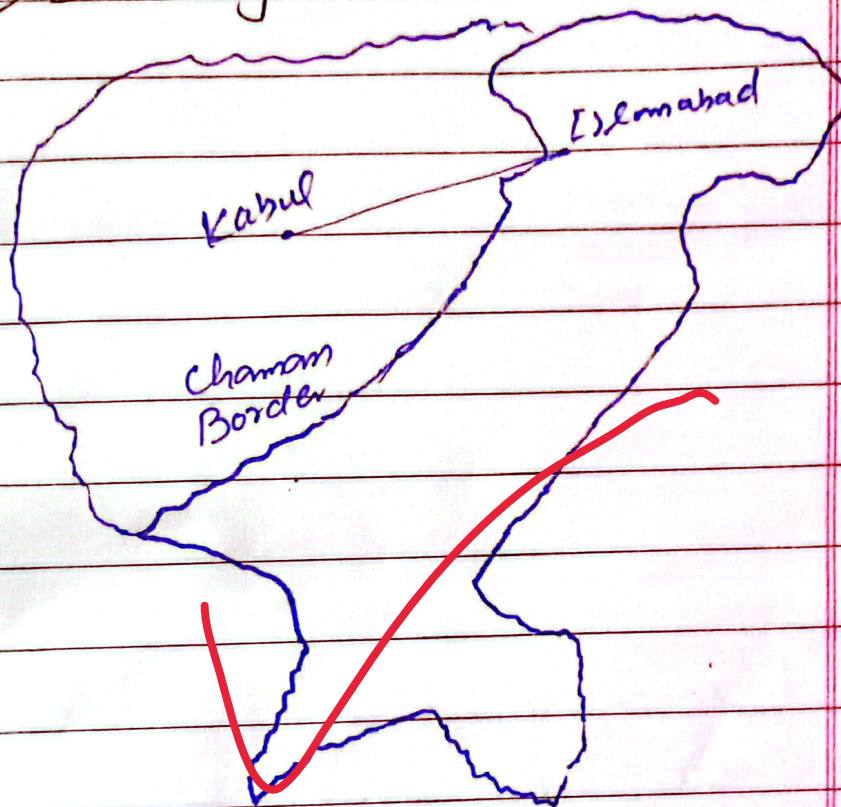 Islamabad
Kabul
Chaman
Border